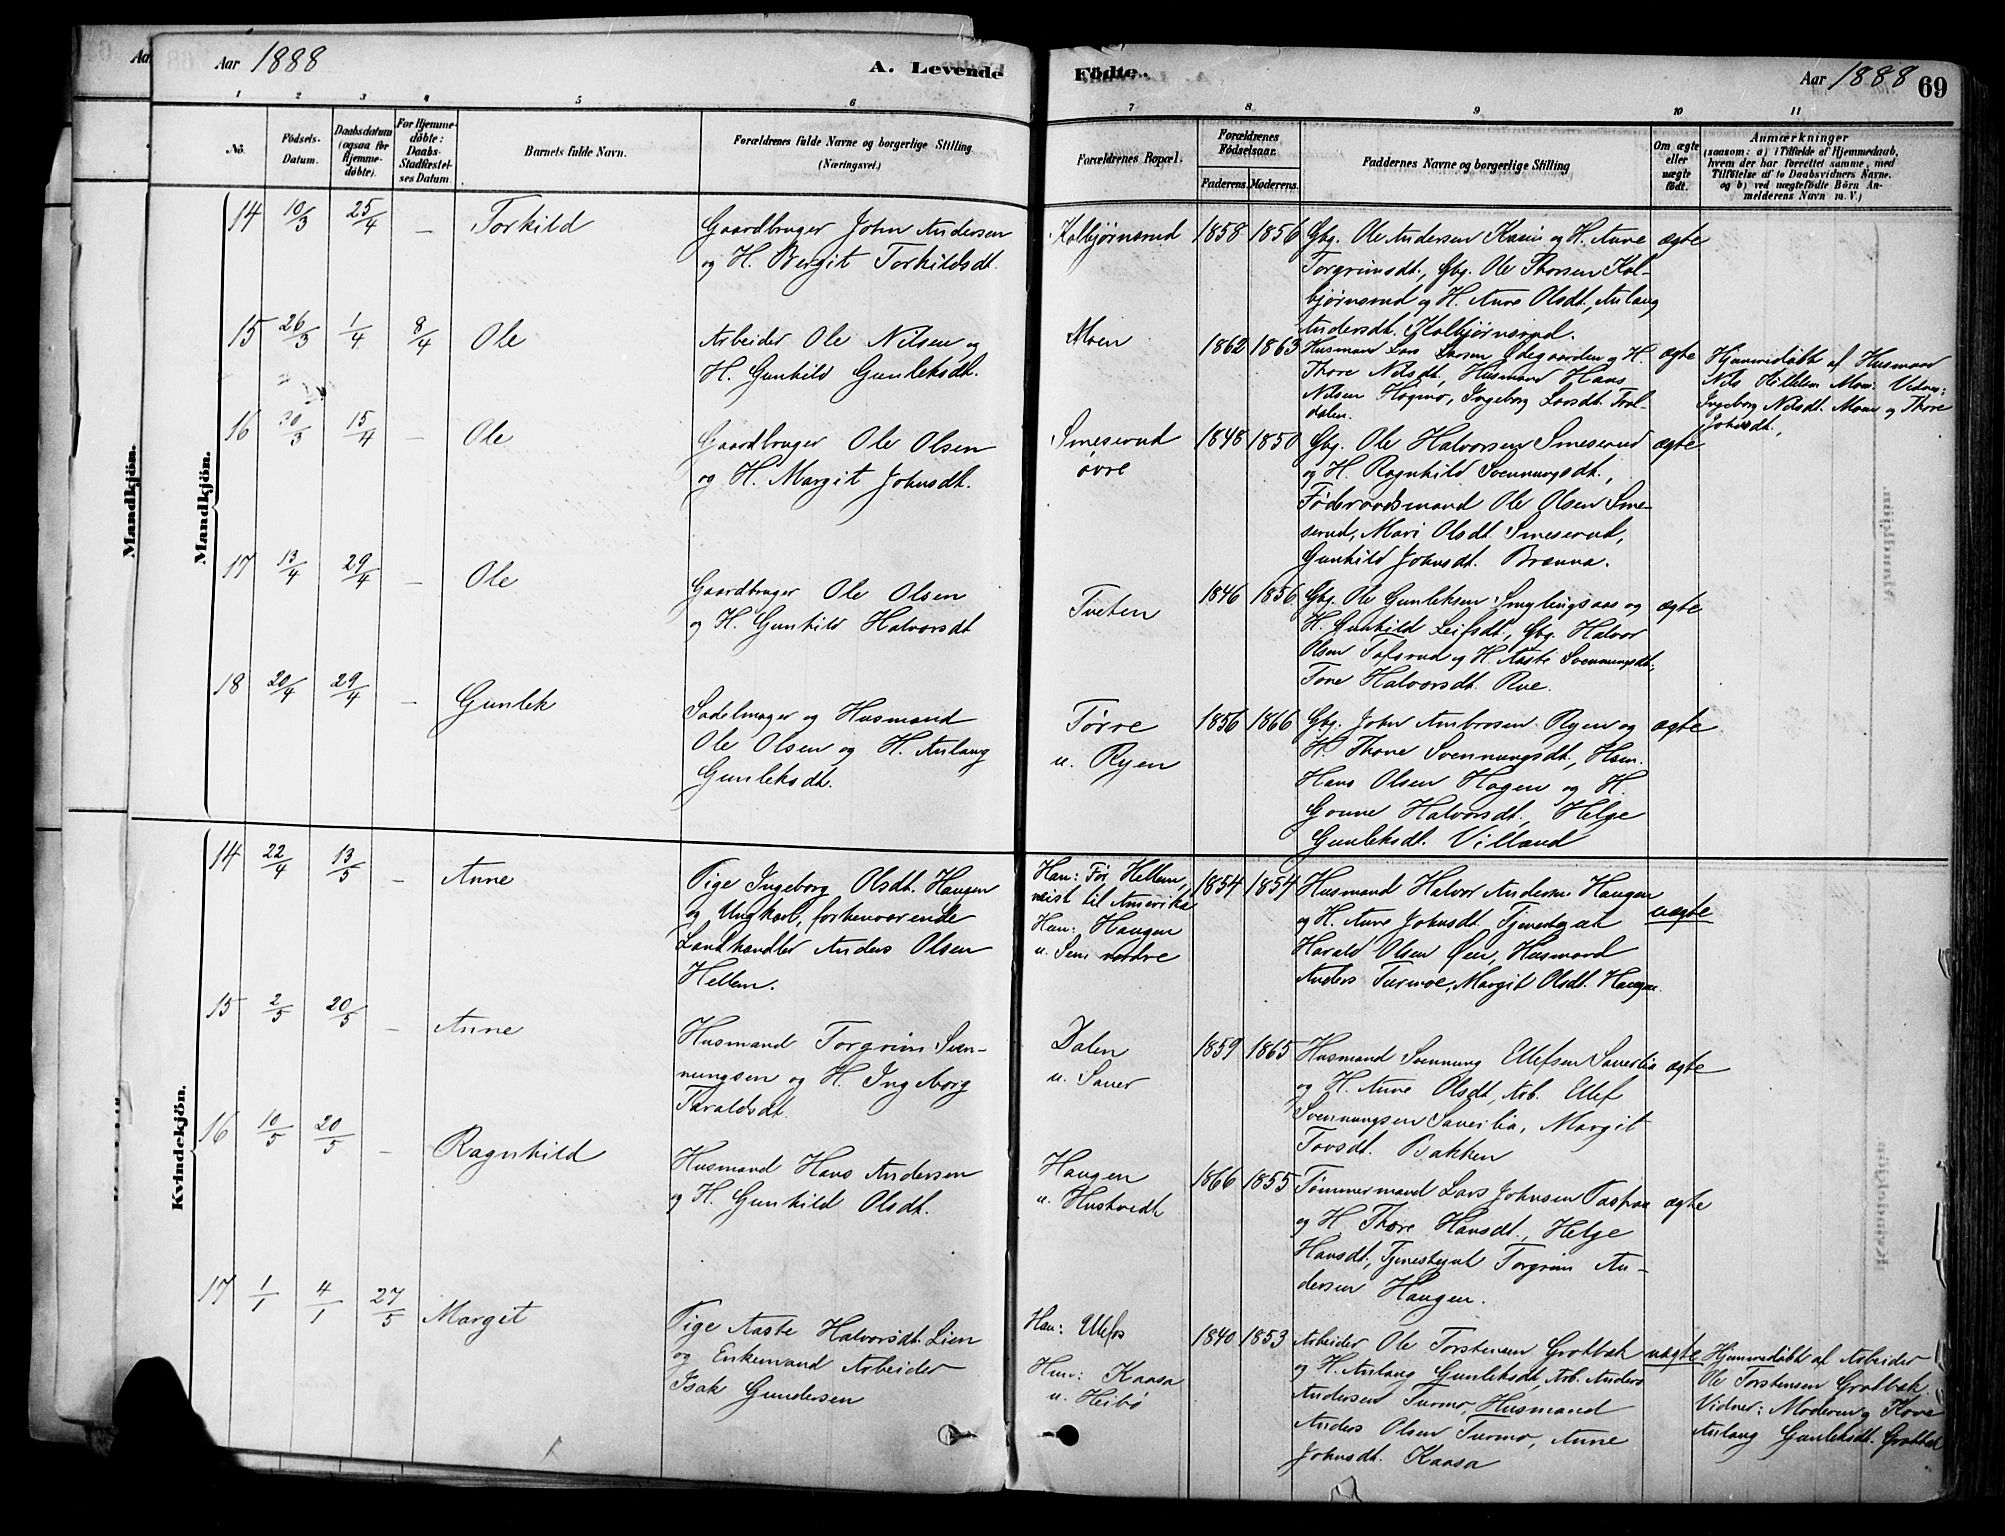 Aar 1888
A. Levende
Födte.
Aar 1888
69
1 2 3 4 5 6 7 8 9 10 11
No.
Födsels-
Datum.
Daabsdatum
(ogsaa for
Hjemme-
döbte).
For Hjemme-
döbte:
Daabs-
Stadfæstel-
ses Datum.
Barnets fulde Navn.
Forældrenes fulde Navne og borgerlige Stilling
(Næringsvei.)
Forældrenes Bopæl.
Forældrenes
Födselsaar.
Faderens. Moderens.
Faddernes Navne og borgerlige Stilling
Om ægte
eller
uægte
födt.
Anmærkninger
(saasom: a) i Tilfælde af Hjemmedaab,
hvem der har forrettet samme, med
Tilföielse af to Daabsvidners Navne.
og b) ved uægtefödte Börn An-
melderens Navn m. V.)
Mandkjön.
Mandkjön.
14 10/3 25/4 — Torkild
Gaardbruger John Andersen
og H. Bergit Torkildsdt.
Kolbjørnsrud 1858 1856
Gbg. Ole Andersen Kasin og H. Anne
Torgrimsdt., Gbg. Ole Thorsen Kol-
bjørnsrud og H. Anne Olsdt., Anlaug
Andersdt. Kolbjørnsrud.
ægte
15 26/3 1/4 8/4 Ole
Arbeider Ole Nilsen og
H. Gunhild Gunleksdt.
Moen 1862 1863
Husmand Lars Larsen Ødegaarden og H.
Thore Nilsdt., Husmand Hans
Nilsen Hogmo, Ingeborg Larsdt. Trol-
dalen.
ægte
Hjemmedøbt af Husmand
Nils Moen. Vidner:
Ingeborg Nilsdt. Moen og Thore
Johnsdt.,
16 30/3 15/4 — Ole
Gaardbruger Ole Olsen
og H. Margit Johnsdt.
Smeserud
øvre
1848 1850
Gbg. Ole Halvorsen Smeserud
og H. Ragnhild Svennungsdt.,
Føderaadsmand Ole Olsen Sme-
serud, Mari Olsdt. Smeserud,
Gunhild Johnsdt. Brænna.
ægte
17 13/4 29/4 — Ole
Gaardbruger Ole Olsen
og H. Gunhild Halvorsdt
Tveten 1846 1856
Gbg. Ole Gunleksen Smylingsaas og
H. Gunhild Leifsdt., Gbg. Halvor
Olsen Tofsrud og H. Aaste Svennungsdt.
Tone Halvorsdt. Rue.
ægte
18 20/4 29/4 — Gunlek
Sadelmager og Husmand
Ole Olsen og H. Anlaug
Gunleksdt.
Tørre
u. Ryen
1856 1866
Gbg. John Ambrosen Ryen og
H. Thone Svennungsdt., Hsm.
Hans Olsen Hagen og H.
Gonne Halvorsdt., Helge
Gunleksdt. Villand
ægte
Kvindekjön.
14 22/4 13/5 — Anne
Pige Ingeborg Olsdt. Haugen
og Ungkarl, forhenværende
Landhandler Anders Olsen
Hellem.
Han: Før Hellem,
reist til Amerika
Hun: Haugen
u. Sem nordre
1854 1854
Husmand Halvor Andersen Haugen
og H. Anne Johnsdt. Tjenestegut
Harald Olsen Øen, Husmand
Anders Turmoe, Margit Olsdt. Haugen.
uægte
15 2/5 20/5 — Anne
Husmand Torgrim Sven-
nungsen og H. Ingeborg
Taraldsdt.
Dalen
u. Sauer
1859 1865
Husmand Svennung Ellefsen Sauerlia
og H. Anne Olsdt, Arb. Ellef
Svennungsen Sauerlia, Margit
Tovsdt. Bakken
ægte
16 10/5 20/5 — Ragnhild
Husmand Hans Andersen
og H. Gunhild Olsdt.
Haugen
u. Hustvedt
1866 1855
Tømmermand Lars Johnsen Paspaa
og H. Thore Hansdt., Helge
Hansdt., Tjenestegut Torgrim An-
dersen Haugen.
ægte
17 1/1 4/1 27/5 Margit
Pige Aaste Halvorsdt. Lien
og Enkemand Arbeider
Isak Gundersen
Han: Ulefos
Hun: Kaasa
u. Heibø
1840 1853
Arbeider Ole Torstensen Grotbæk
og H. Anlaug Gunleksdt, Arb. Anders
Andersen Turmo, Husmand
Anders Olsen Turmo, Anne
Johnsdt. Kaasa
uægte
Hjemmedøbt af Arbeider
Ole Torstensen Grotbæk.
Vidner: Moderen og Kone
Anlaug Gunleksdt. Grotbæk